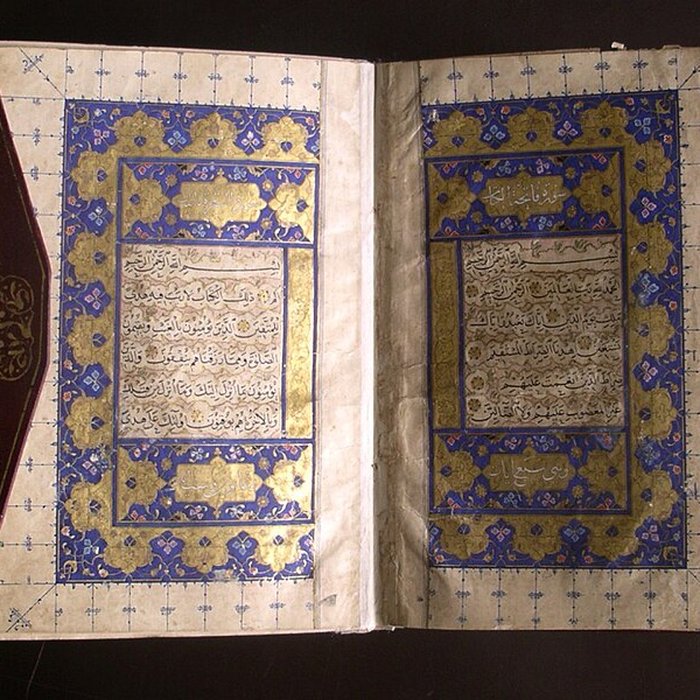 سورة فاتحة الكتاب
بسم الله الرحمن الرحيم
الحمد لله رب العالمين الرحمن الرحيم
ملك يوم الدين اياك نعبد واياك
نستعين اهدنا الصراط المستقيم
صراط الذين انعمت عليهم
غير المغضوب عليهم ولا الضالين
وهي سبع ايات
سورة البقرة
بسم الله الرحمن الرحيم
الم ذلك الكتاب لا ريب فيه هدى
للمتقين الذين يؤمنون بالغيب ويقيمون
الصلوة ومما رزقناهم ينفقون والذين
يؤمنون بما انزل اليك وما انزل من قبلك
وبالاخرة هم يوقنون اولئك على هدى